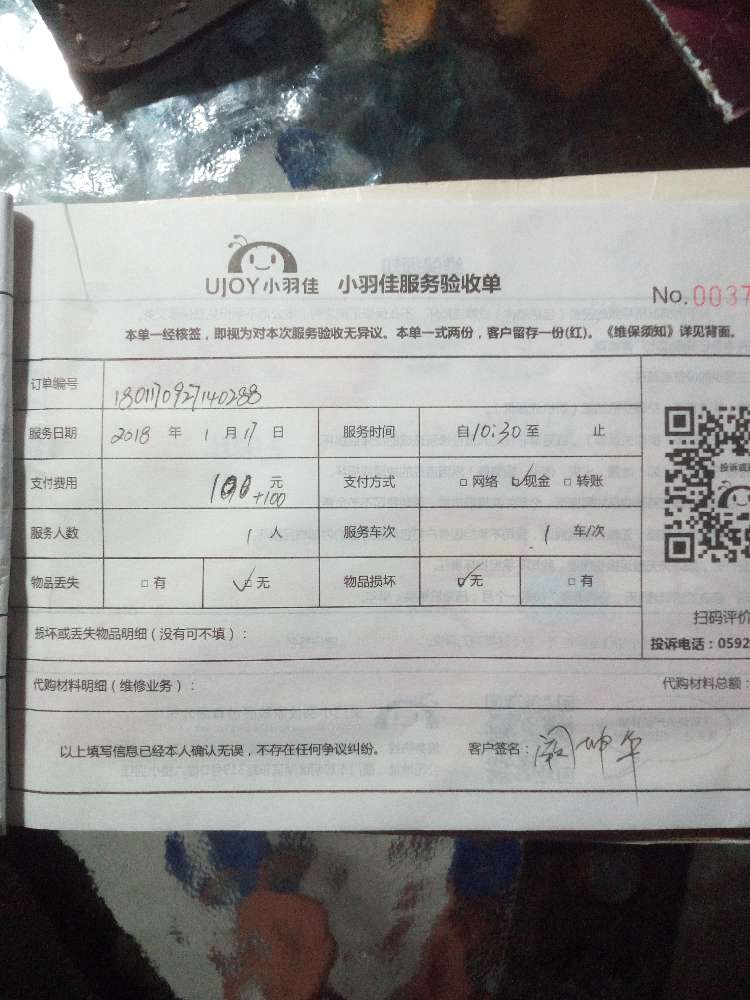 UJOY小羽佳 小羽佳服务验收单
No.0037
本单一经核签，即视为对本次服务验收无异议。本单一式两份，客户留存一份(红)。《维保须知》详见背面。
订单编号 1801170927140288
服务日期 2018 年 1 月 17 日 服务时间 自10:30至 止
支付费用 100 +100 元 支付方式 □ 网络 ☑现金 □ 转账
服务人数 1 人 服务车次 1 车/次
物品丢失 □ 有 ☑ 无 物品损坏 ☑ 无 □ 有
投诉或
扫码评价
损坏或丢失物品明细（没有可不填）：
投诉电话：0592
代购材料明细（维修业务）： 代购材料总额：
以上填写信息已经本人确认无误，不存在任何争议纠纷。 客户签名：